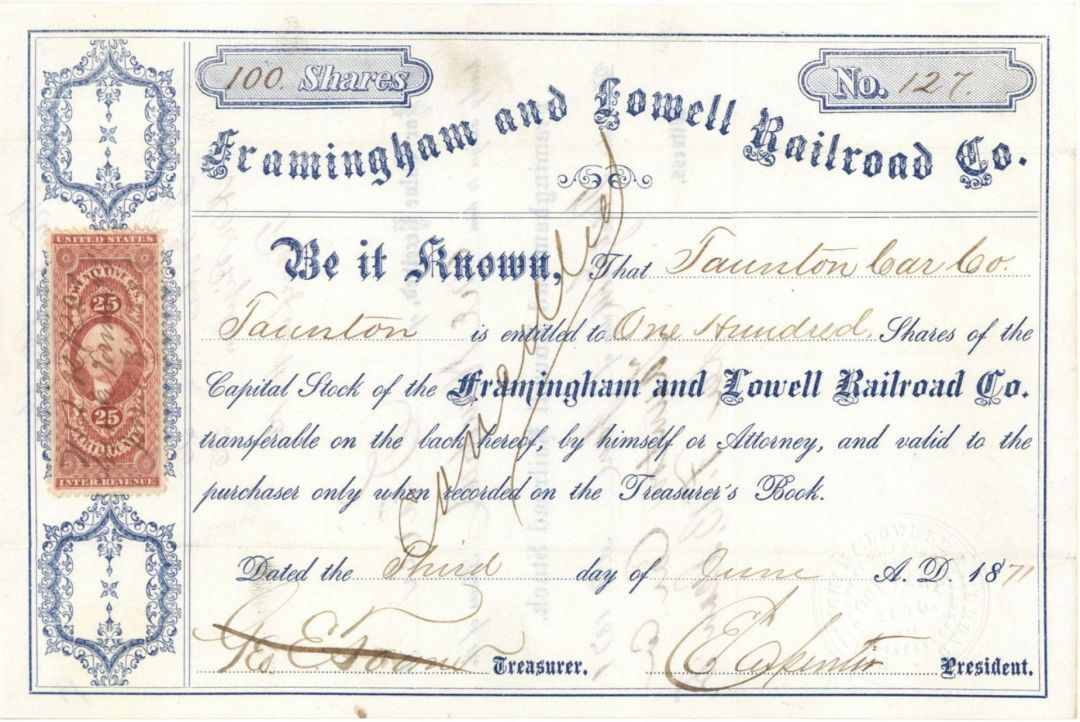 100. Shares
No. 127.
Framingham and Lowell Railroad Co.
Be it Known, That Taunton Car Co.
Taunton is entitled to One Hundred Shares of the
Capital Stock of the Framingham and Lowell Railroad Co.
transferable on the back hereof, by himself or Attorney, and valid to the
purchaser only when recorded on the Treasurer's Book.
Cancelled
Dated the Third day of June A. D. 1871
Geo. E. Towne Treasurer.
E Carpenter President.
UNITED STATES
25
25
INTER. REVENUE